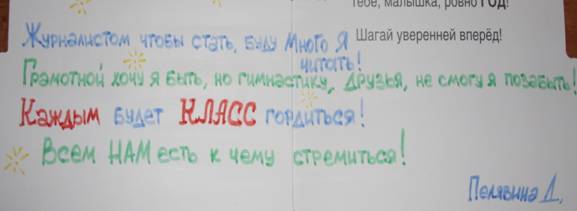 тебе, малышка, ровно ГОД!
Шагай уверенней вперёд!
Журналистом чтобы стать, буду много я
читать!
Грамотной хочу я быть, но гимнастику, друзья, не смогу я позабыть!
Каждым будет КЛАСС гордиться!
Всем НАМ есть к чему стремиться!
Пелявина Д.